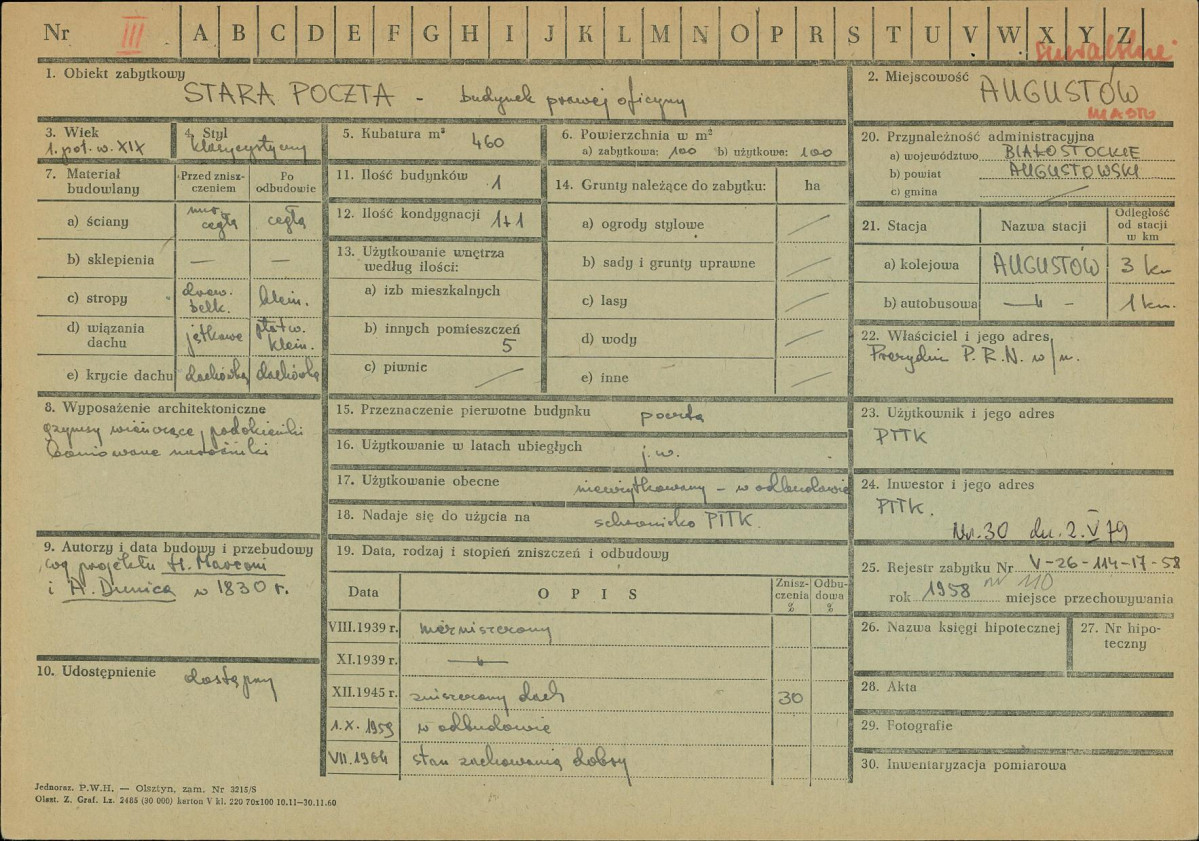 Nr III A B C D E F G H I J K L M N O P R S T U V W X Y Z
suwalskie
1. Obiekt zabytkowy
STARA POCZTA - budynek prawej oficyny
2. Miejscowość
AUGUSTÓW
MIASTO
3. Wiek
1. poł. w. XIX
4. Styl
klasycystyczny
5. Kubatura m³
460
6. Powierzchnia w m²
a) zabytkowa: 100 b) użytkowa: 100
7. Materiał budowlany
Przed zniszczeniem
Po odbudowie
a) ściany mur. cegła cegła
b) sklepienia — —
c) stropy drew. belk. klein.
d) wiązania dachu jętkowe płatw. klein.
e) krycie dachu dachówka dachówka
8. Wyposażenie architektoniczne
gzymsy wieńczące, podokienniki
boniowane narożniki
9. Autorzy i data budowy i przebudowy
wg projektu H. Marconi
i A. Dunica w 1830 r.
10. Udostępnienie
dostępny
11. Ilość budynków 1
12. Ilość kondygnacji 1+1
13. Użytkowanie wnętrza
według ilości:
a) izb mieszkalnych
b) innych pomieszczeń
5
c) piwnic /
14. Grunty należące do zabytku: ha
a) ogrody stylowe /
b) sady i grunty uprawne /
c) lasy /
d) wody /
e) inne /
15. Przeznaczenie pierwotne budynku poczta
16. Użytkowanie w latach ubiegłych j.w.
17. Użytkowanie obecne nieużytkowany - w odbudowie
18. Nadaje się do użycia na schronisko PTTK.
19. Data, rodzaj i stopień zniszczeń i odbudowy
Data OPIS Zniszczenia % Odbudowa %
VIII.1939 r. niezniszczony
XI.1939 r. —"—
XII.1945 r. zniszczony dach 30
1.X.1959 w odbudowie
VII.1964 stan zachowania dobry
20. Przynależność administracyjna
a) województwo BIAŁOSTOCKIE
b) powiat AUGUSTOWSKI
c) gmina /
21. Stacja Nazwa stacji Odległość od stacji w km
a) kolejowa AUGUSTÓW 3 km
b) autobusowa —"— 1 km.
22. Właściciel i jego adres
Prezydium P.R.N. w/m.
23. Użytkownik i jego adres
PTTK
24. Inwestor i jego adres
PTTK.
Nr. 30 dn. 2.V 79
25. Rejestr zabytku Nr V-26-114-17-58
nr 110
rok 1958 miejsce przechowywania
26. Nazwa księgi hipotecznej
27. Nr hipoteczny
28. Akta
29. Fotografie
30. Inwentaryzacja pomiarowa
Jednoraz. P.W.H. — Olsztyn, zam. Nr 3215/S
Olszt. Z. Graf. Lz. 2485 (30 000) karton V kl. 220 70x100 10.11—30.11.60